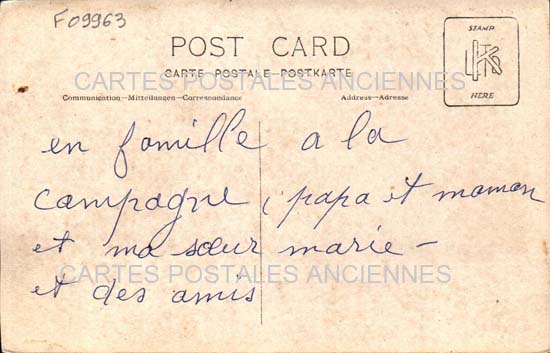 F09963
POST CARD
CARTE POSTALE-POSTKARTE
CARTES POSTALES ANCIENNES
Communication—Mitteilungen—Correspondance
Address—Adresse
STAMP
HERE
en famille a la
campagne, papa et maman
et ma sœur marie -
CARTES POSTALES ANCIENNES
et des amis